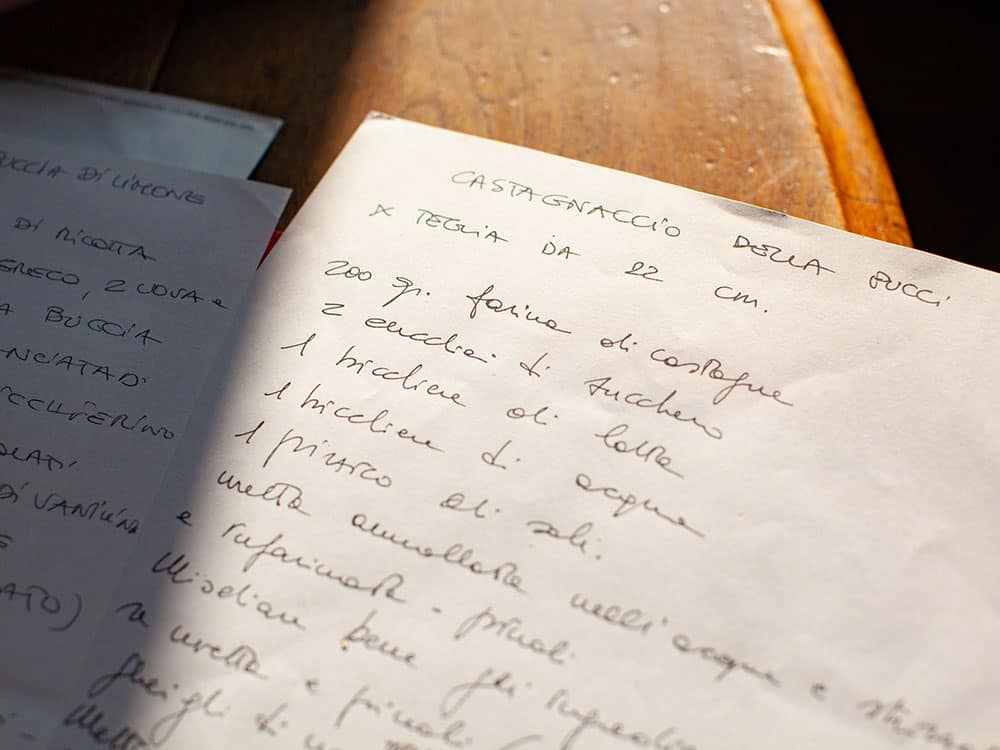 BUCCIA DI LIMONE
DI RICOTTA
GRECO, 2 UOVA e
A BUCCIA
CUCCHIERINO
DI VANIGLIA
CASTAGNACCIO DELLA PUCCI
X TEGLIA DA 22 CM.
200 gr. farina di castagne
2 cucchiai di zucchero
1 bicchiere di latte
1 bicchiere di acqua
1 pizzico di sale.
uvetta ammollata nell'acqua e
e rinfarinata - pinoli
Miscelare bene gli
uvetta e pinoli
gherigli di